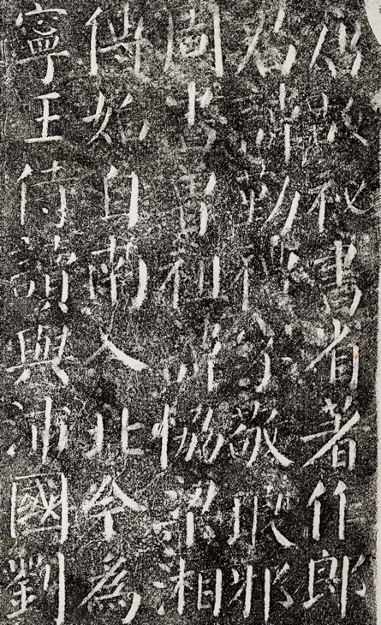 唐故秘書省著作郎
君諱勤禮字敬琅邪
周書曾祖諱協梁湘
傳始自南入北今為
寧王侍讀與沛國劉